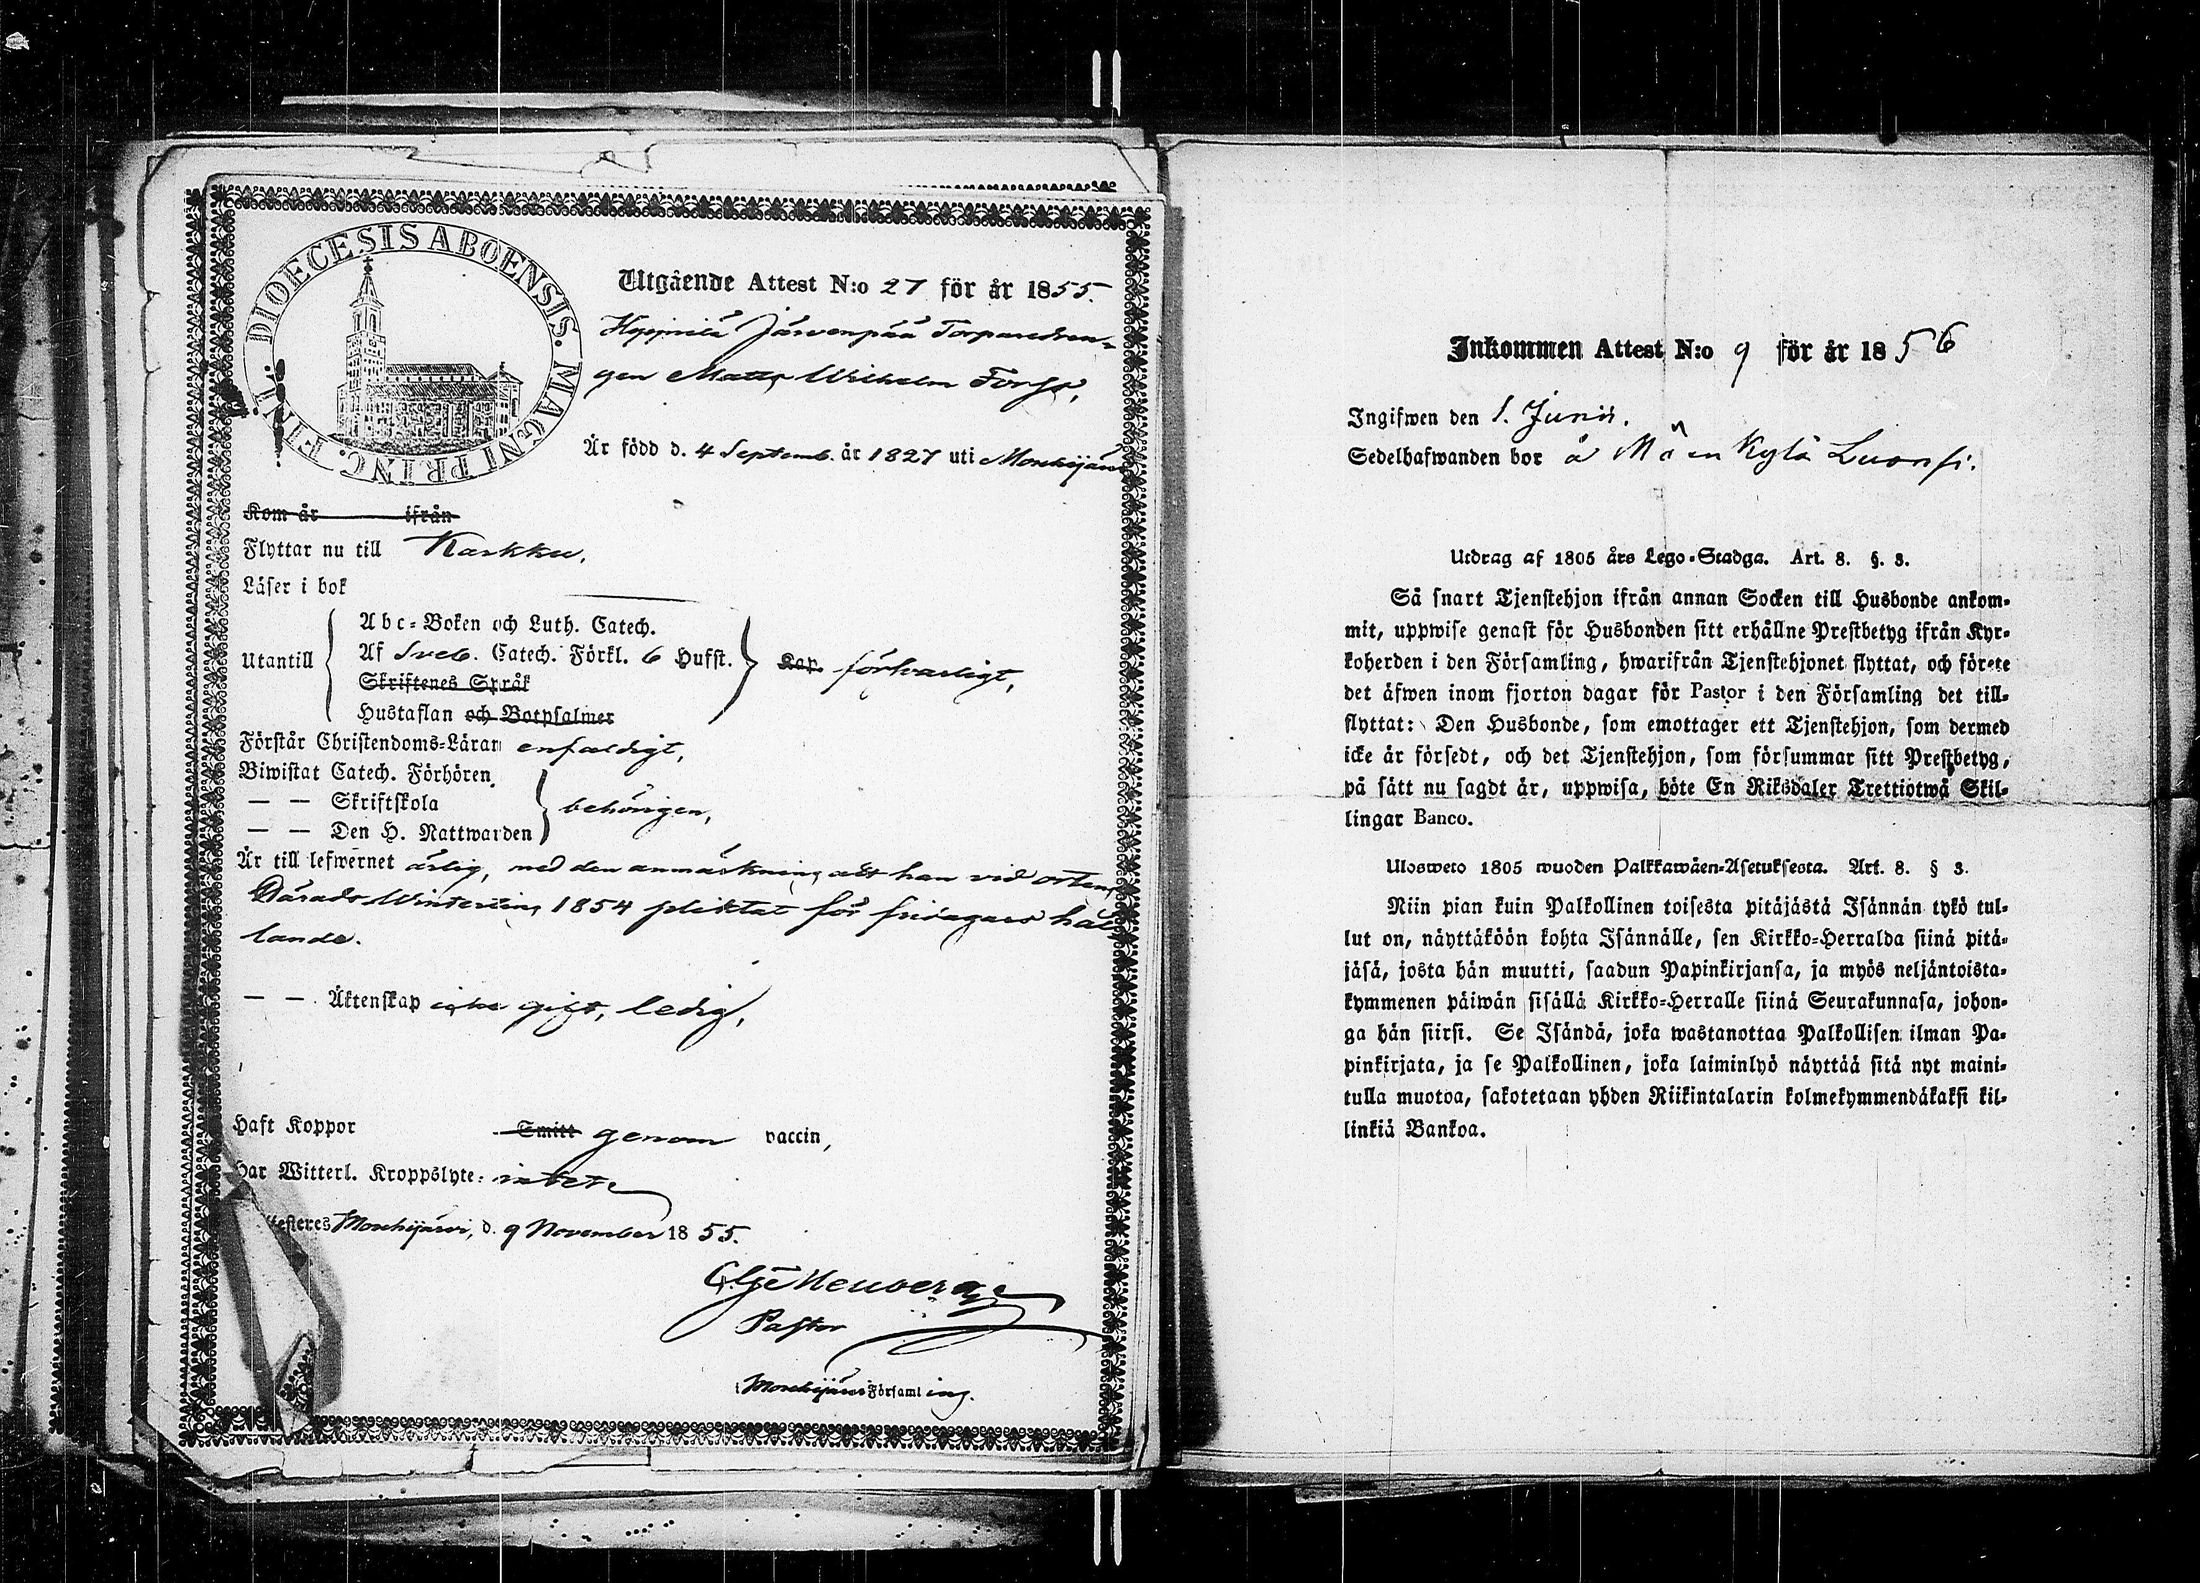 DIOECESIS ABOENSIS. MAGNI PRINC. FINL.
Utgående Attest N:o 27 för år 1855.
Järvenpää Torparedren-
gen Matts Wilhelm Forss,
Är född d. 4 Septemb. år 1827 uti Mouhijärvi
Kom år ifrån
Flyttar nu till Karkku.
Läser i bok
Abc-Boken och Luth. Catech.
Utantill Af Sveb. Catech. Förkl. 6 Hufst. Kap. försvarligt,
Skriftenes Språk
Hustaflan och Botpsalmer
Förstår Christendoms-Läran enfaldigt,
Biwistat Catech. Förhören
— — Skriftskola behörigen,
— — Den H. Nattwarden
Är till lefwernet ärlig, med den anmärkning att han vid ortens
Härads Winterting 1854 pliktat för svagdrickas hål
lande.
— — Äktenskap icke gift, ledig,
Haft Koppor Smitt genom vaccin,
Har Witterl. Kroppslyte: intet
Attesteres Mouhijärvi, d. 9 November 1855.
Pastor
Mouhijärvi Församling.
Inkommen Attest N:o 9 för år 1856
Ingifwen den 1. Junii.
Sedelhafwanden bor å Mäenkylä Luonsi.
Utdrag af 1805 års Lego-Stadga. Art. 8. §. 3.
Så snart Tjenstehjon ifrån annan Socken till Husbonde ankom-
mit, uppwise genast för Husbonden sitt erhållne Prestbetyg ifrån Kyr-
koherden i den Församling, hwarifrån Tjenstehjonet flyttat, och förete
det äfwen inom fjorton dagar för Pastor i den Församling det till-
flyttat: Den Husbonde, som emottager ett Tjenstehjon, som dermed
icke är försedt, och det Tjenstehjon, som försummar sitt Prestbetyg,
på sätt nu sagdt är, uppwisa, böte En Riksdaler Trettiotwå Skil-
lingar Banco.
Ulosweto 1805 wuoden Palkkawäen-Asetuksesta. Art. 8. § 3.
Niin pian kuin Palkollinen toisesta pitäjästä Isännän tykö tul-
lut on, näyttäköön kohta Isännälle, sen Kirkko-Herralda siinä pitä-
jäsä, josta hän muutti, saadun Papinkirjansa, ja myös neljäntoista-
kymmenen päiwän sisällä Kirkko-Herralle siinä Seurakunnasa, johon-
ga hän siirsi. Se Isändä, joka wastanottaa Palkollisen ilman Pa-
pinkirjata, ja se Palkollinen, joka laiminlyö näyttää sitä nyt maini-
tulla muotoa, sakotetaan yhden Riikintalarin kolmekymmendäkaksi kil-
linkiä Bankoa.